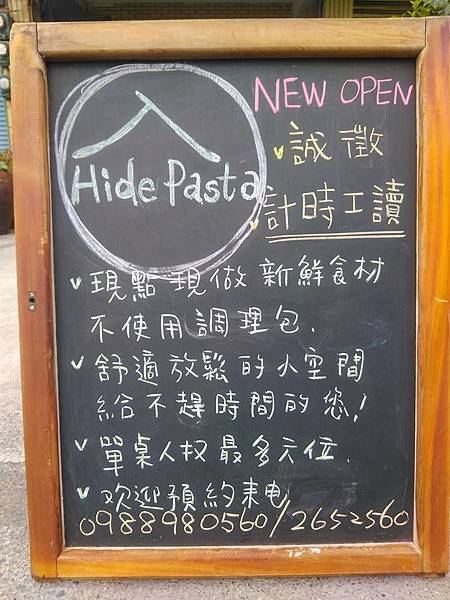 入
Hide Pasta
NEW OPEN
誠徵
計時工讀
現點現做 新鮮食材
不使用調理包.
舒適放鬆的小空間
給不趕時間的您!
單桌人权最多六位.
欢迎預約来电
0988980560/2652560